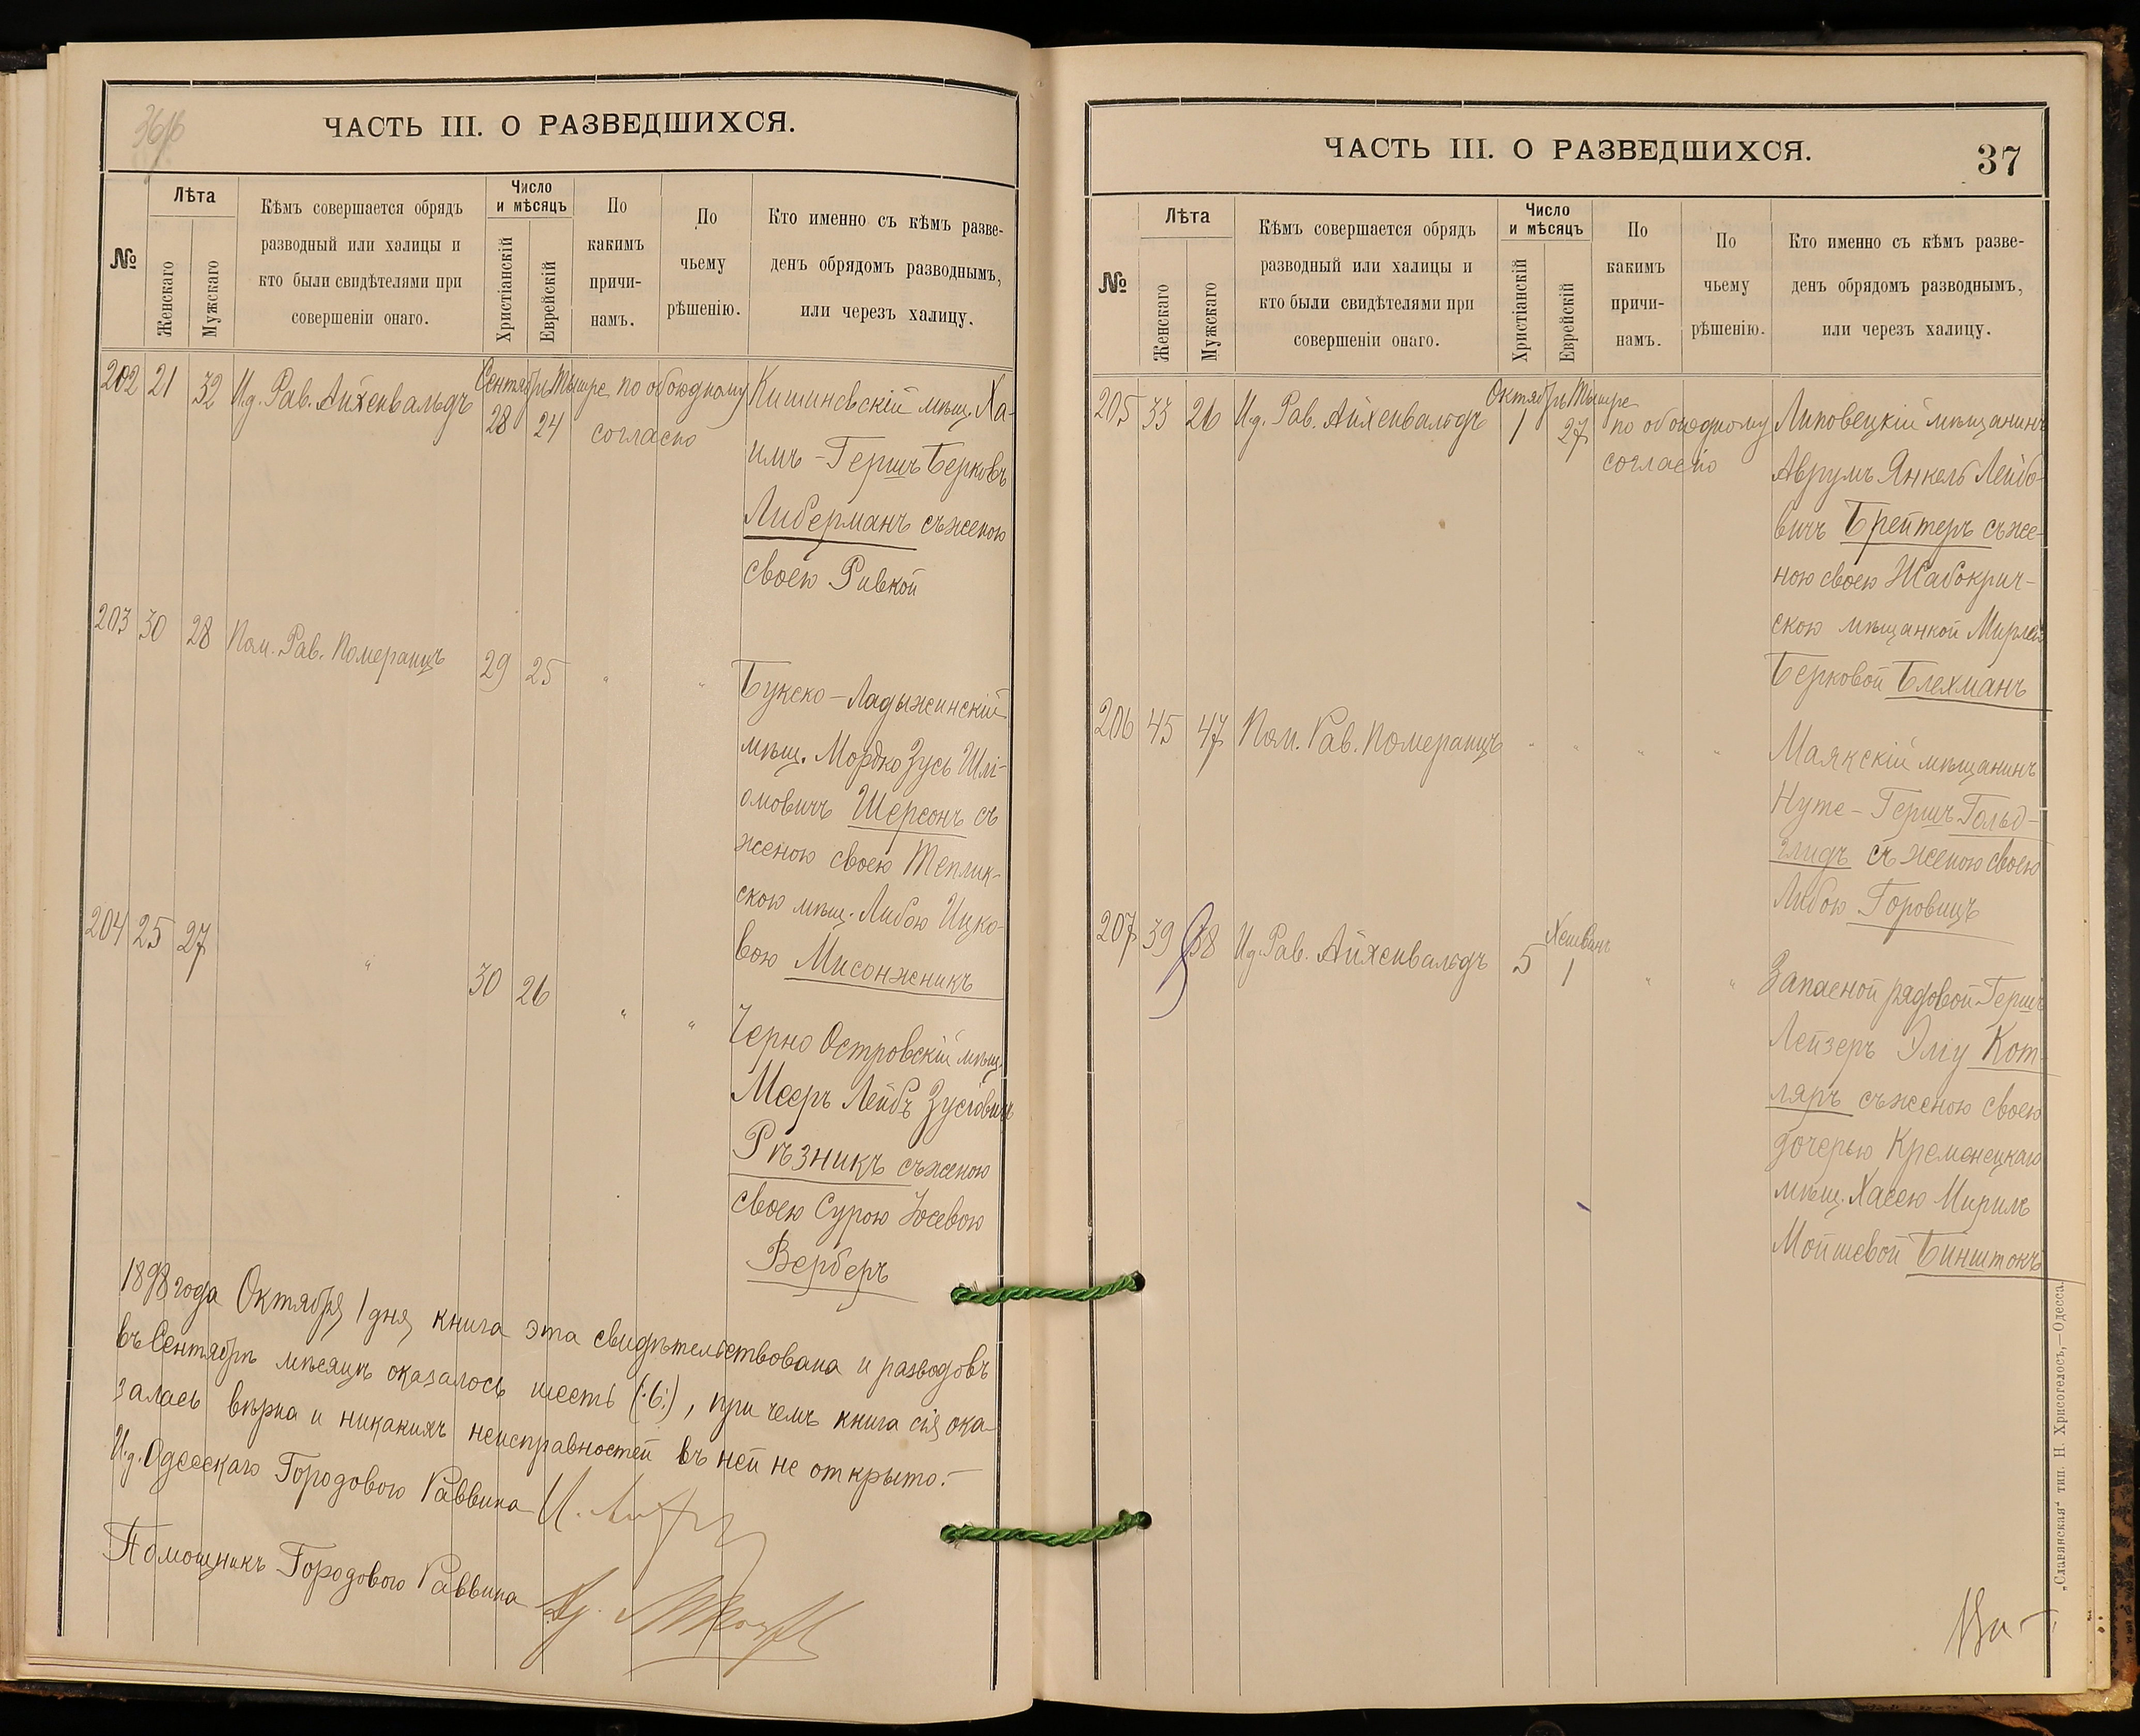 36об
ЧАСТЬ III. О РАЗВЕДШИХСЯ.
№
Лѣта
Женскаго
Мужскаго
Кѣмъ совершается обрядъ
разводный или халицы и
кто были свидѣтелями при
совершеніи онаго.
Число
и мѣсяцъ
Христіанскій
Еврейскій
По
какимъ
причи-
намъ.
По
чьему
рѣшенію.
Кто именно съ кѣмъ разве-
денъ обрядомъ разводнымъ,
или черезъ халицу.
202 21 32 И.д. Рав. Айхенвальдъ
Сентябрь Тышре
28 24
по обоюдному
согласію
Кишиневскій мѣщ. Ха-
имъ-Гершъ Берковъ
Либерманъ съ женою
своею Ривкой
203 30 28 Пом. Рав. Померанцъ 29 25 " "
Букско-Ладыжинскій
мѣщ. Мордко Зусь Шлі-
омовичъ Шерсонъ съ
женою своею Теплик-
скою мѣщ. Либою Ицко-
вою Мисонжникъ
204 25 27 " 30 26 " "
Черно Островскій мѣщ.
Мееръ Лейбъ Зусіовичъ
Рѣзникъ съ женою
своею Сурою Іосевою
Верберъ
1898 года Октября 1 дня, книга эта свидѣтельствована и разводовъ
въ Сентябрѣ мѣсяцѣ оказалось шесть (:6:), при чемъ книга сія ока-
залась вѣрна и никакихъ неисправностей въ ней не открыто.-
И.д. Одесскаго Городового Раввина
Помощникъ Городового Раввина
ЧАСТЬ III. О РАЗВЕДШИХСЯ.
37
№
Лѣта
Женскаго
Мужскаго
Кѣмъ совершается обрядъ
разводный или халицы и
кто были свидѣтелями при
совершеніи онаго.
Число
и мѣсяцъ
Христіанскій
Еврейскій
По
какимъ
причи-
намъ.
По
чьему
рѣшенію.
Кто именно съ кѣмъ разве-
денъ обрядомъ разводнымъ,
или черезъ халицу.
205 33 26 И.д. Рав. Айхенвальдъ
Октябрь Тышре
1 27
по обоюдному
согласію
Липовецкій мѣщанинъ
Аврумъ Янкель Лейбо-
вичъ Брейтеръ съ же-
ною своею Жабокрич-
скою мѣщанкой Мирлей
Берковой Блехманъ
206 45 47 Пом. Рав. Померанцъ " " " "
Маякскій мѣщанинъ
Нуте-Гершъ Гольд-
глидъ съ женою своею
Либою Горовицъ
207 39 38 И.д. Рав. Айхенвальдъ 5
Хешванъ
1 " "
Запасной рядовой Гершъ
Лейзеръ Эліу Кот-
ляръ съ женою своею
дочерью Кременецкаго
мѣщ. Хасею Миримъ
Мойшевой Бинштокъ
„Славянская“ тип. Н. Хрисогелосъ,—Одесса.